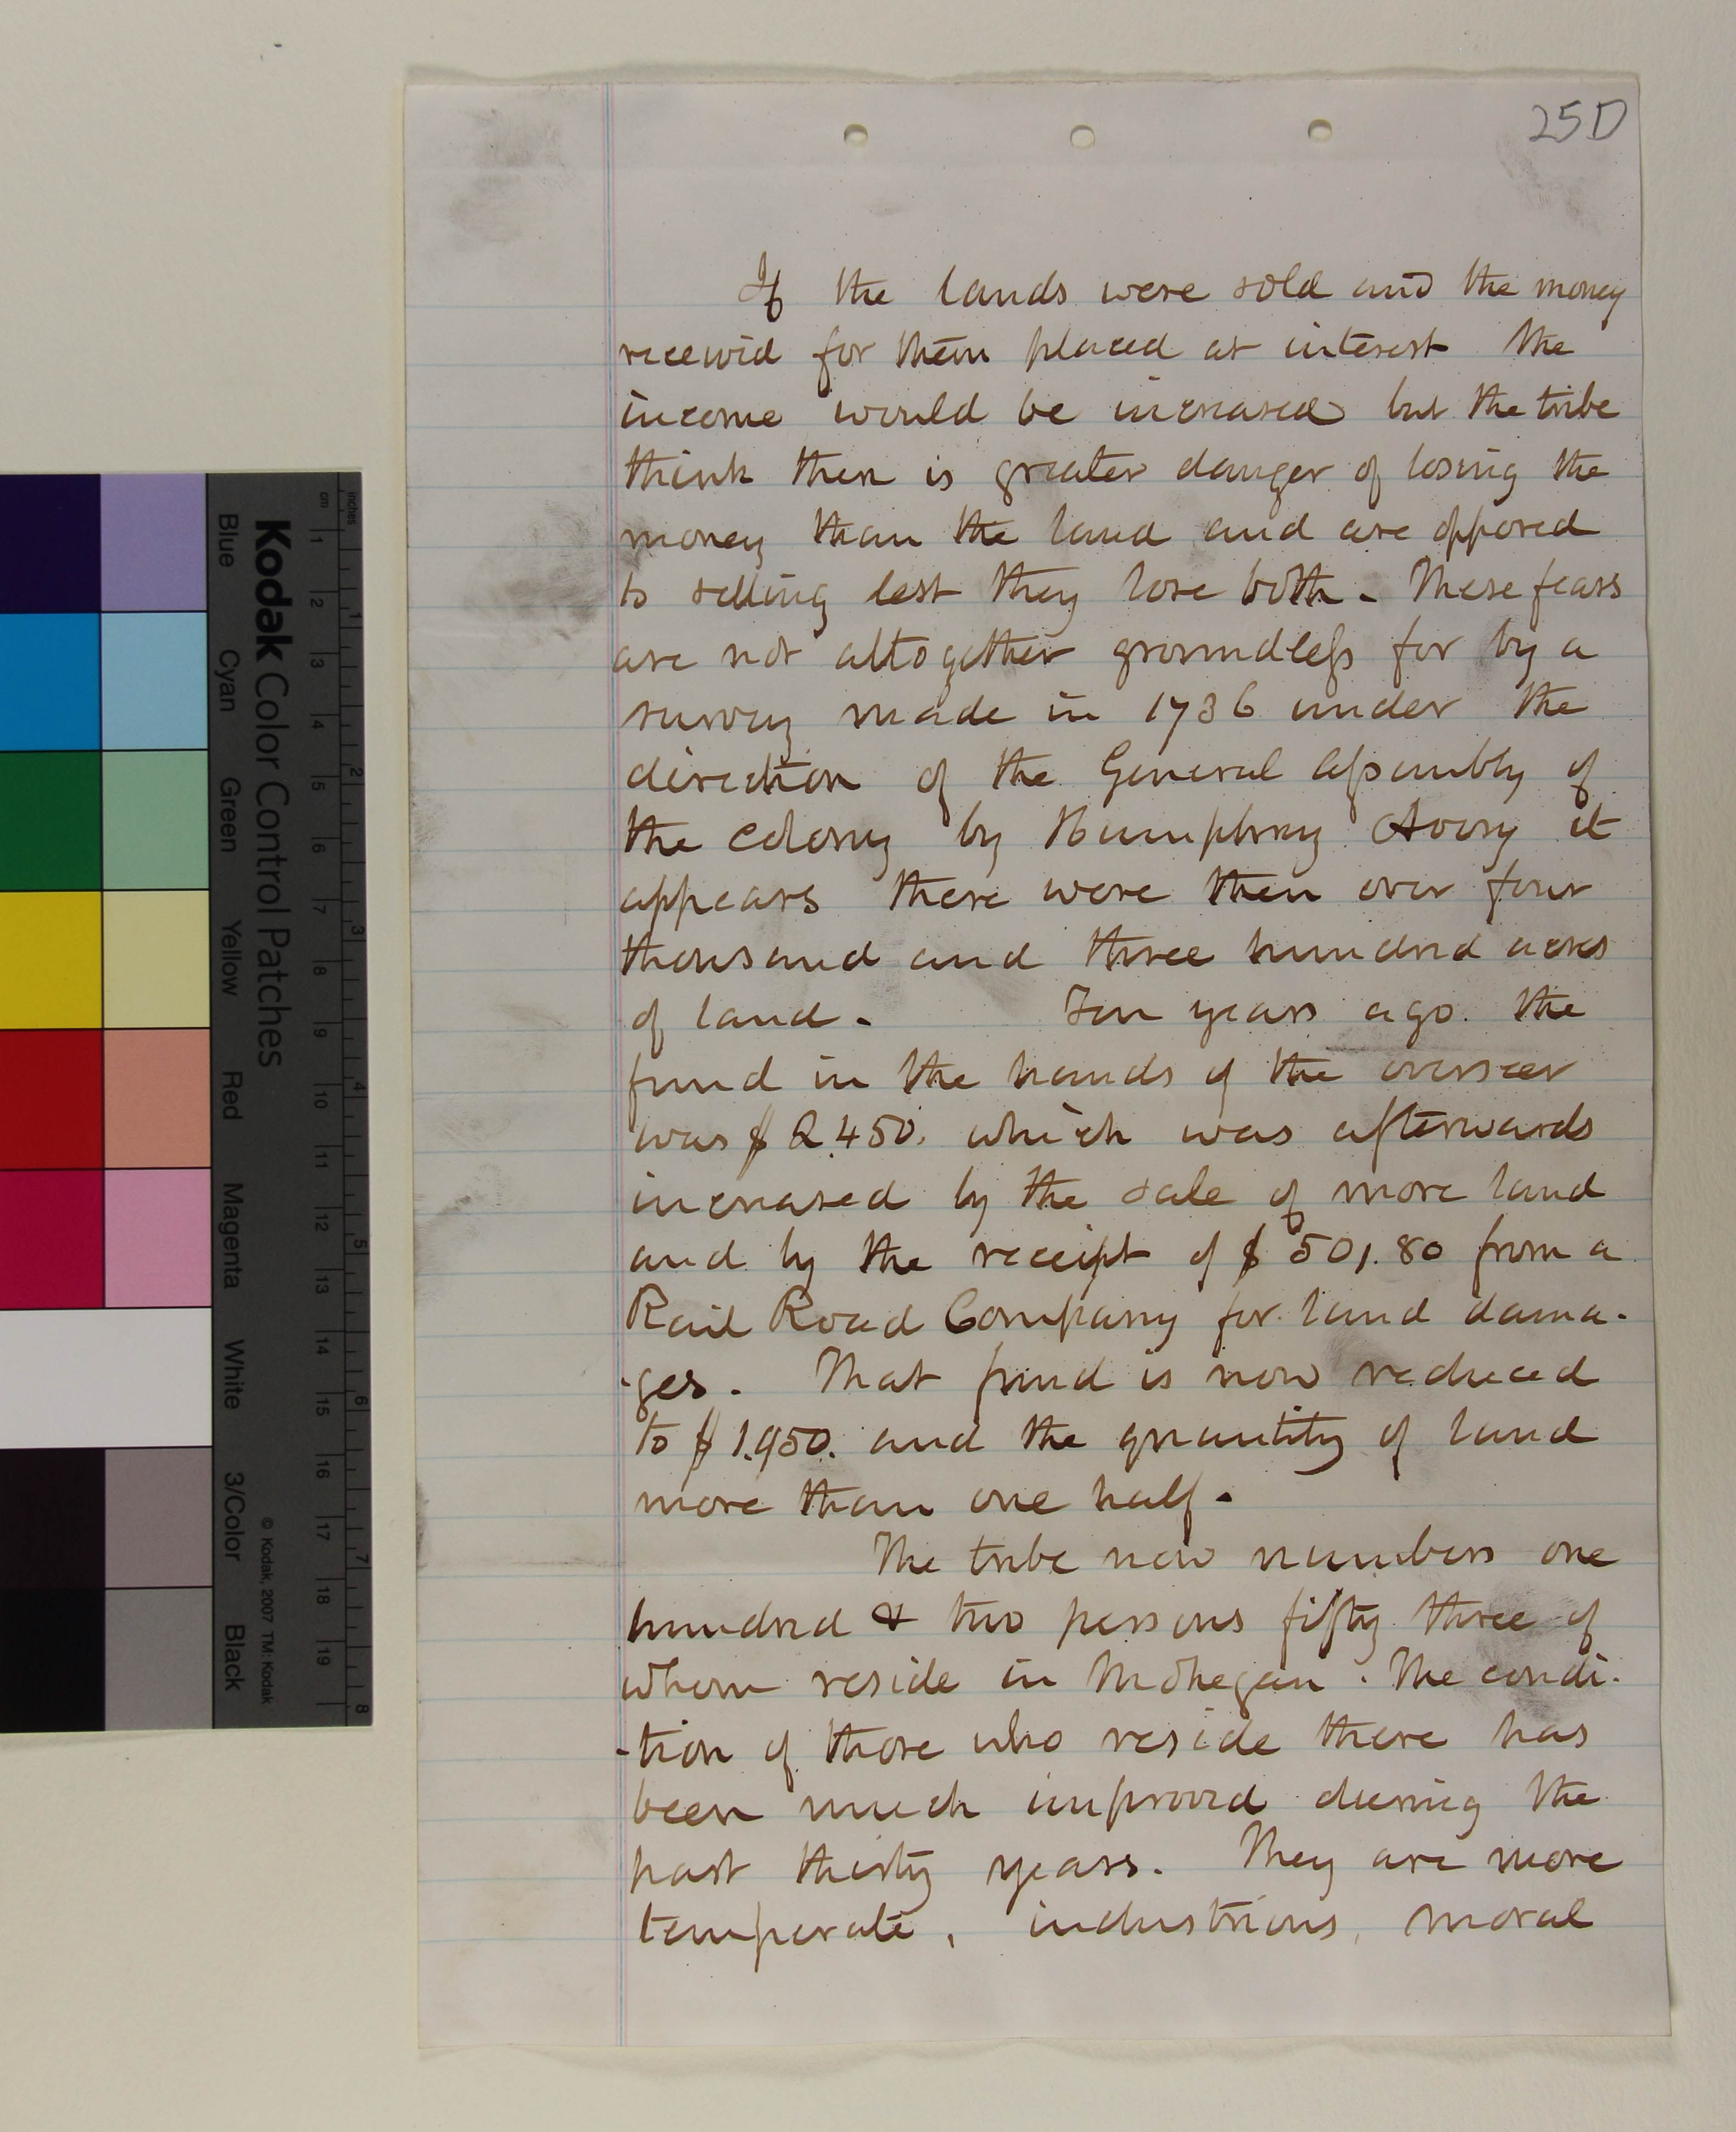 25D
If the lands were sold and the money
received for them placed at interest the
income would be increased but the tribe
think there is greater danger of losing the
money than the land and are opposed
to selling lest they lose both. These fears
are not altogether groundless for by a
survey made in 1736 under the
direction of the General Assembly of
the Colony by Humphrey Avery it
appears there were then over four
thousand and three hundred acres
of land. Ten years ago. the
fund in the hands of the overseer
was $2.450. which was afterwards
increased by the sale of more land
and by the receipt of $501.80 from a
Rail Road Company for land dama-
-ges. That fund is now reduced
to $1.950. and the quantity of land
more than one half.
The tribe now numbers one
hundred & two persons fifty three of
whom reside in Mohegan. The condi-
-tion of those who reside there has
been much improved during the
past thirty years. They are more
temperate, industrious, moral
inches
cm
1 2 3 4 5 6 7 8
1 2 3 4 5 6 7 8 9 10 11 12 13 14 15 16 17 18 19
Kodak Color Control Patches
© Kodak, 2007 TM: Kodak
Blue Cyan Green Yellow Red Magenta White 3/Color Black